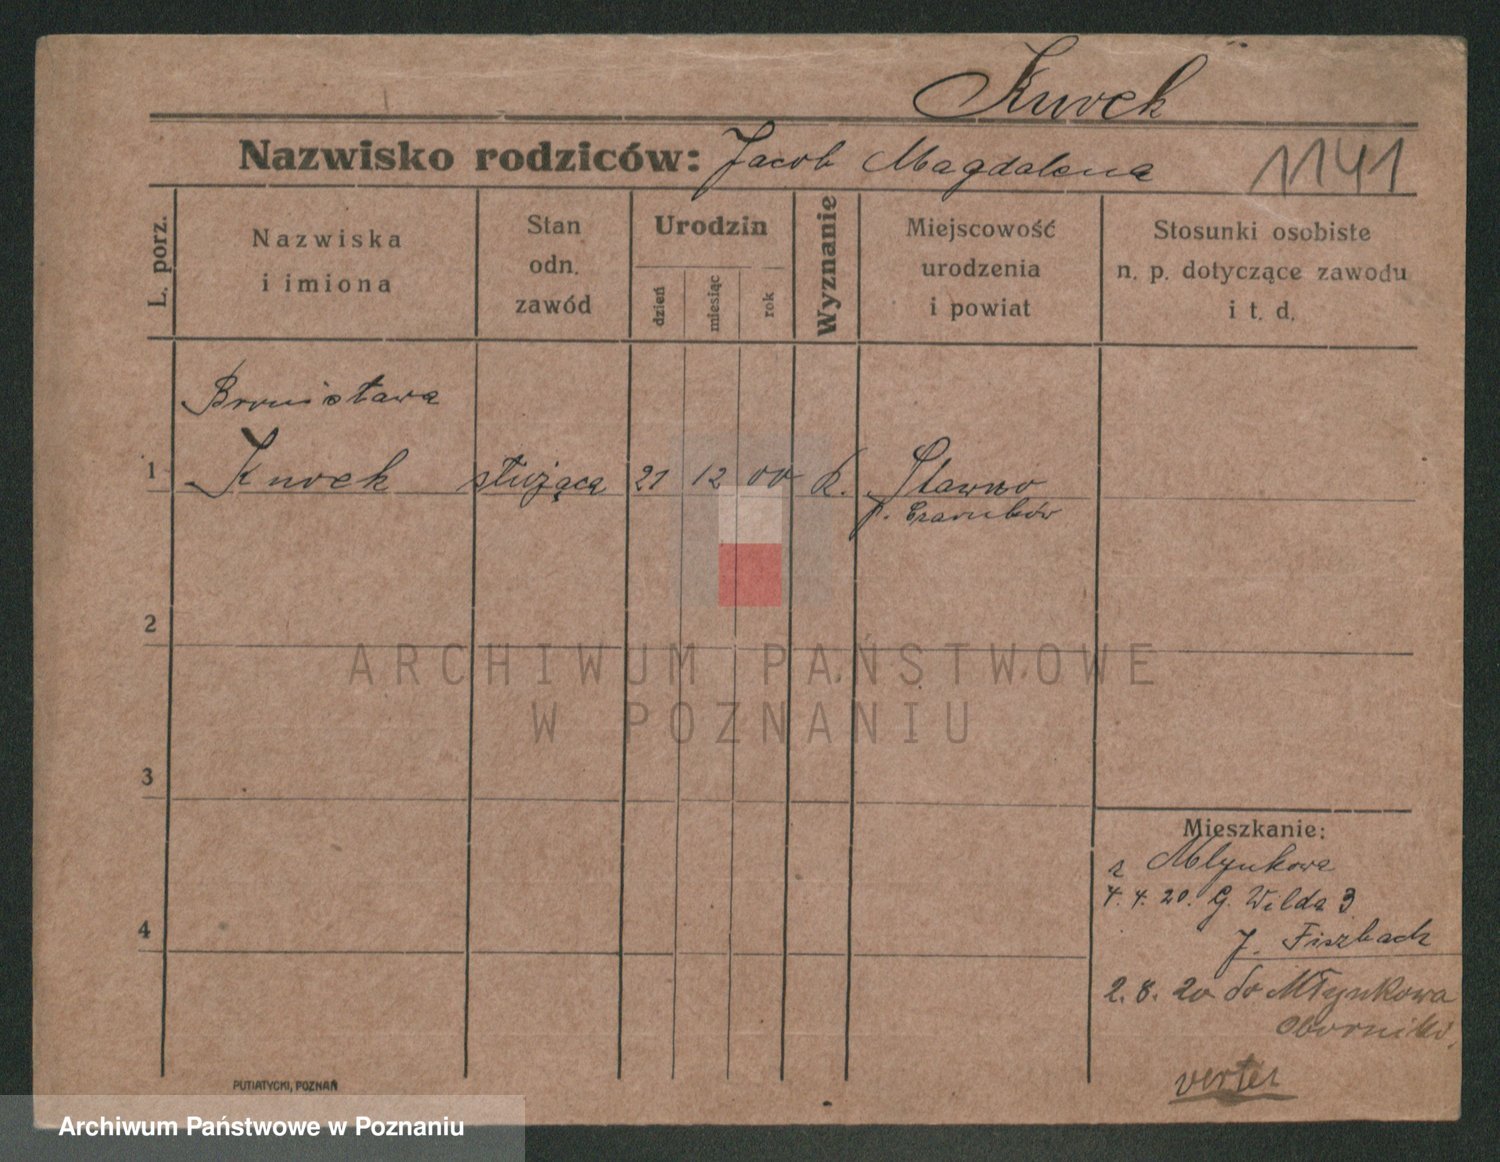 Kurek
Nazwisko rodziców: Jacob Magdalena
1141
L. porz.
Nazwiska
i imiona
Stan
odn.
zawód
Urodzin
dzień
miesiąc
rok
Wyznanie
Miejscowość
urodzenia
i powiat
Stosunki osobiste
n. p. dotyczące zawodu
i t. d.
Bronisława
1 Kurek służąca 21 12 00 k. Sławno
p. Czarnków
2
3
4
Mieszkanie:
z Młynkowa
7. 4. 20. G. Wilda 3
J. Fiszbach
2. 8. 20 do Młynkowa
Oborniki.
verte
PUTIATYCKI, POZNAŃ
ARCHIWUM PAŃSTWOWE
W POZNANIU
Archiwum Państwowe w Poznaniu